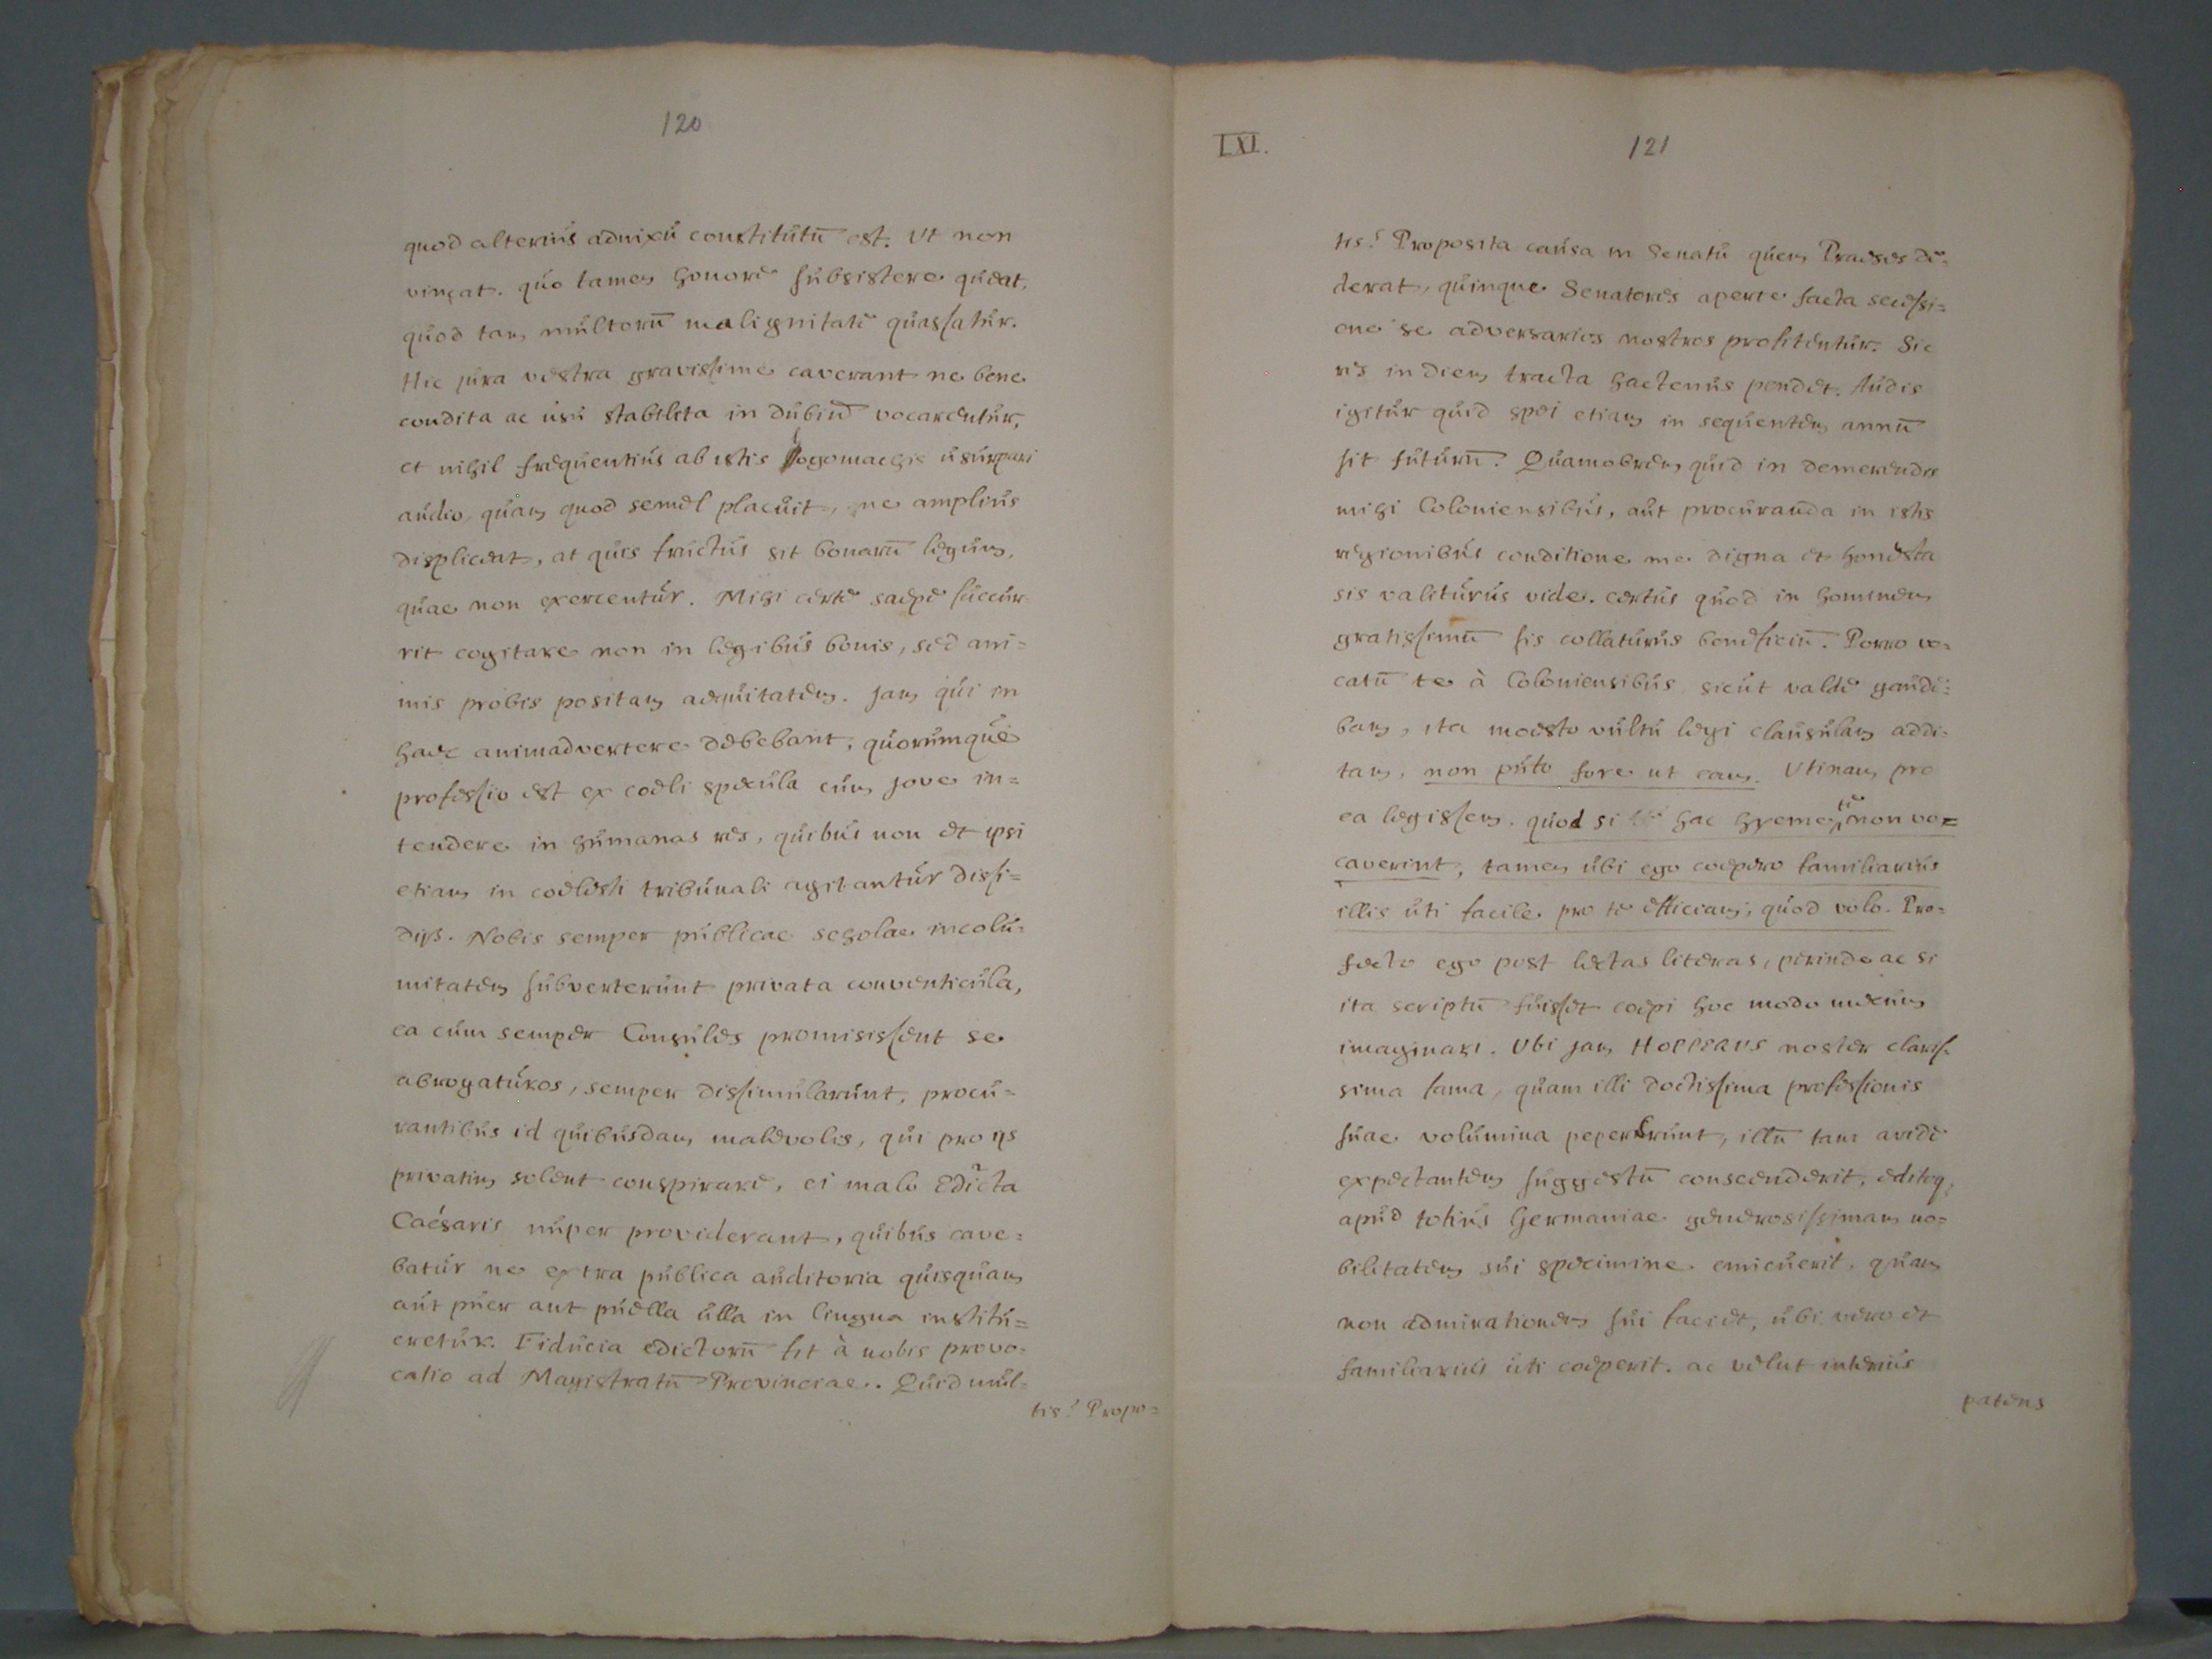 120
quod alterius adnixu constitutū est. Vt non
vincat. quo tamen honore subsistere queat,
quod tam multorū malignitate quassatur.
Hic jura vestra gravissime caverant ne bene
condita ac usu stabilita in dubiū vocarentur,
et nihil frequentius ab istis logomachis usurpari
audio, quam quod semel placuit, ne amplius
displiceat, at quis fructus sit bonarū legum,
quae non exercentur. Mihi certe saepe succur-
rit cogitare non in legibus bonis, sed ani=
mis probis positam aequitatem. Jam qui in
haec animadvertere debebant, quorumque
professio est ex coeli specula cum Jove in=
tendere in humanas res, quibus non et ipsi
etiam in coelesti tribunali agitantur dissi=
dijs. Nobis semper publicae scholae incolu-
mitatem subverterunt privata conventicula,
ea cum semper Consules promisissent se
abrogaturos, semper dissimularunt, procu=
rantibus id quibusdam malevolis, qui pro ijs
privatim solent conspirare, ei malo Edicta
Caesaris nuper providerant, quibus cave=
batur ne extra publica auditoria quisquam
aut puer aut puella ulla in lingua institu=
eretur. Fiducia edictorū fit à nobis provo-
catio ad Magistratū Provinciae. Quid mul-
tis? Propo=
LXI.
121
tis? Proposita causa in Senatu quem Praeses de-
derat, quinque Senatores aperte facta secessi=
one se adversarios nostros profitentur. Sic
res in diem tracta hactenus pendet. Audis
igitur quid spei etiam in sequentem annū
sit futurū. Quamobrem quid in demerendis
mihi Coloniensibus, aut procuranda in istis
regionibus conditione me digna et honesta
sis valiturus vide. certus quod in hominem
gratissimū sis collaturus beneficiū. Porro vo-
catū te à Coloniensibus, sicut valde gaude-
bam, ita moesto vultu legi clausulam addi-
tam, non puto fore ut eam. Utinam pro
ea legissem, quod si hac hyeme te non vo=
caverint, tamen ubi ego coepero familiarius
illis uti facile pro te efficiam, quod volo. Pro-
fecto ego post lectas literas, perinde ac si
ita scriptū fuisset coepi hoc modo mecum
imaginari. Ubi jam HOPPERUS noster claris-
sima fama, quam illi doctissima professionis
suae volumina pepererunt, illū tam avide
expectantem suggestū conscenderit, editoq;
apud totius Germaniae generosissimam no-
bilitatem sui specimine emicuerit, quam
non admirationem sui faciet, ubi vero et
familiarius uti coeperit. ac velut interius
patens